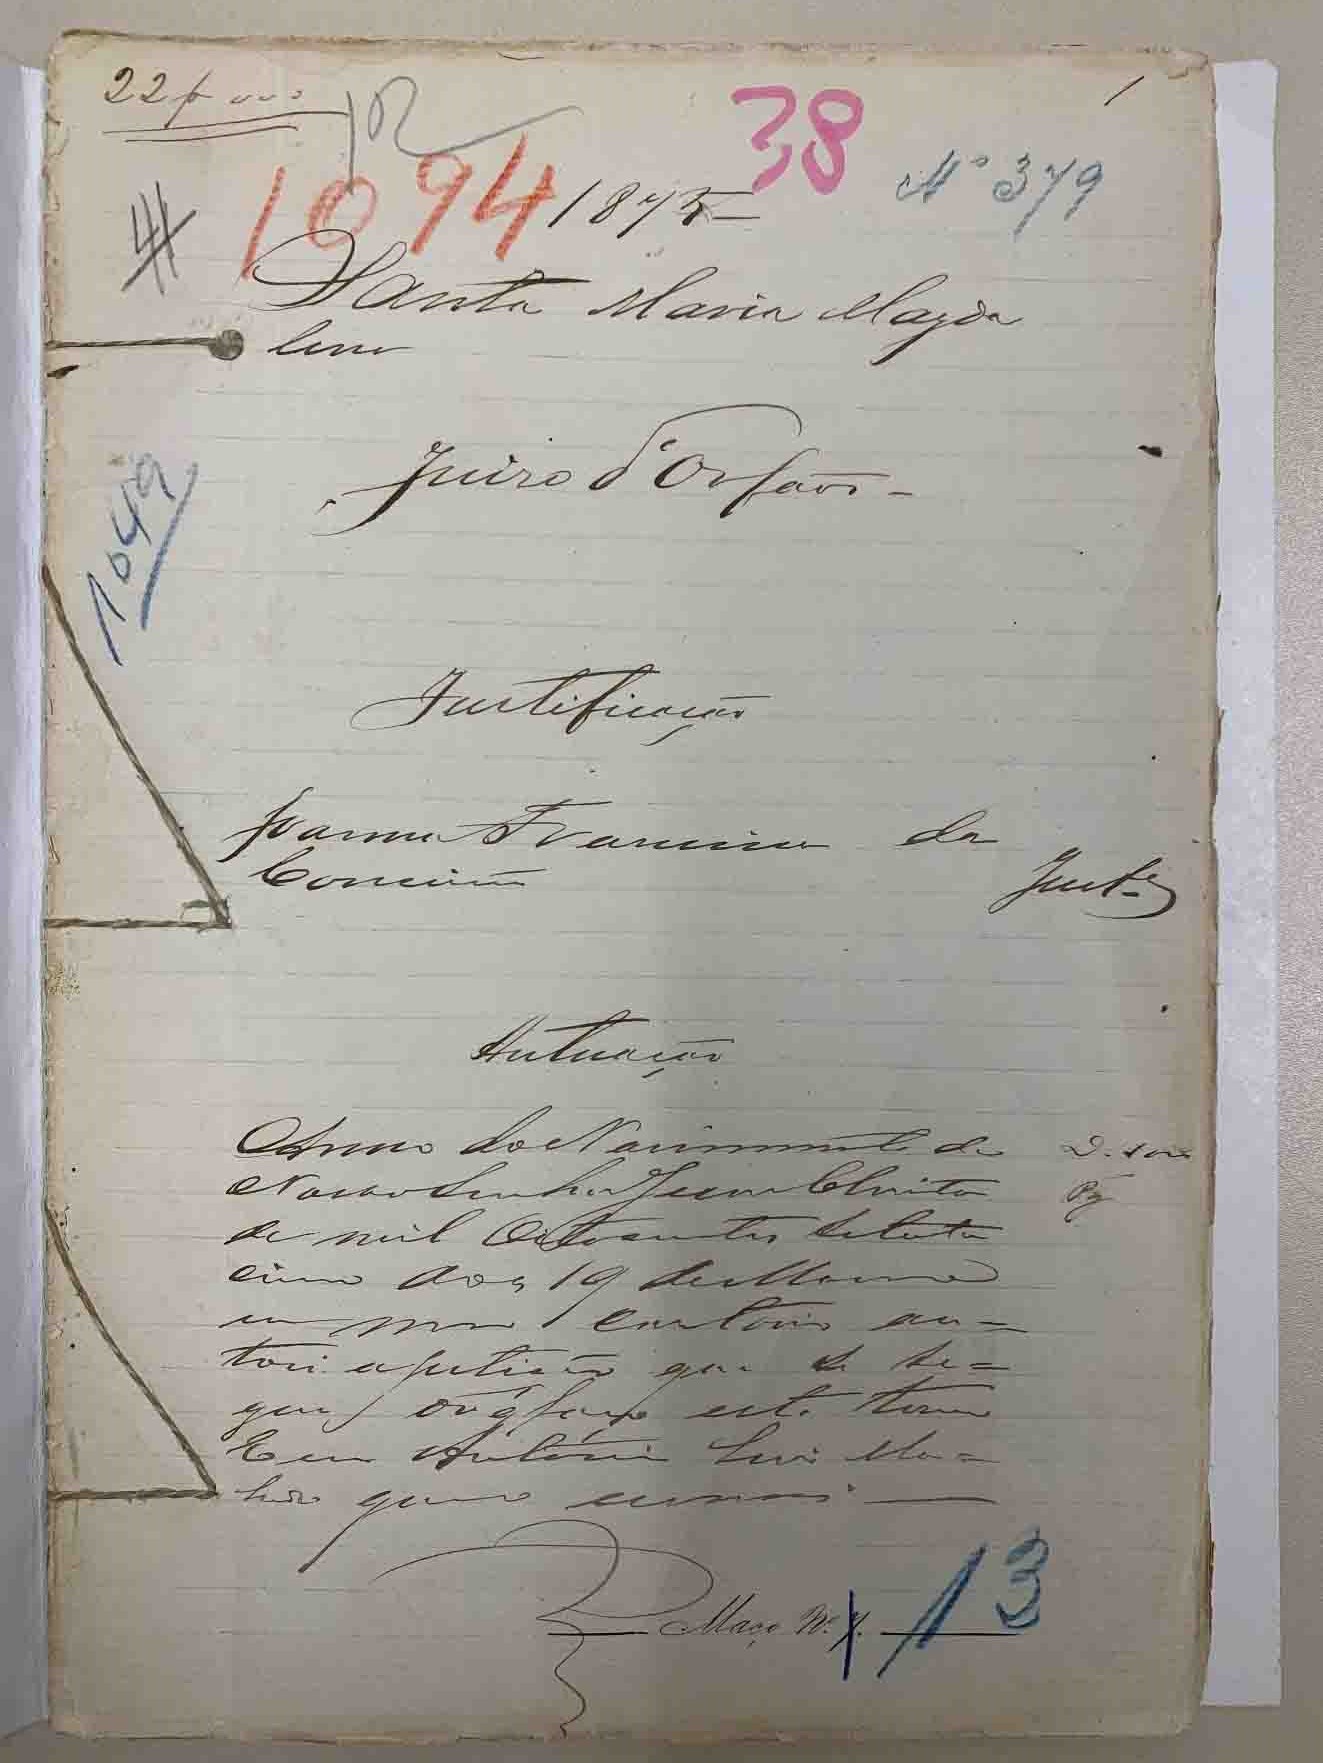 1
38
Nº 379
1094
1875
Santa Maria Magda
lena
1049
Juizo d'Orfãos -
Justificação
Joanna Francisca da
Conceição
Just.e
Autuação
Anno do Nascimento de
Nosso Senhor Jesus Christo
de mil Oitocentos setenta
cinco aos 19 de Março
em meu Cartorio au-
toei a petição que se se-
gue, faço este termo
Eu Antonio Luis Ma-
chado que o escrevi
Maço Nº. 13